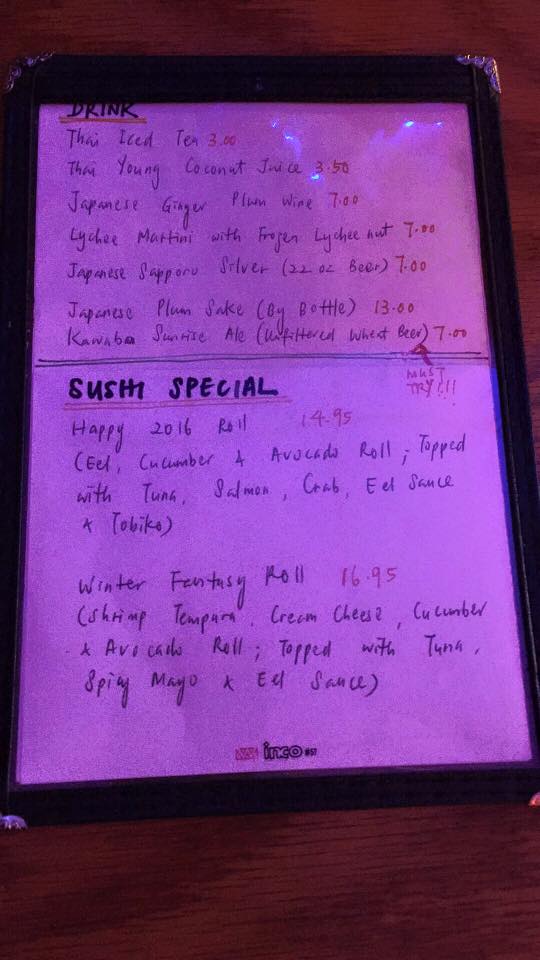 DRINK
Thai Iced Tea 3.00
Thai Young Coconut Juice 3.50
Japanese Ginger Plum Wine 7.00
Lychee Martini with Frozen Lychee nut 7.00
Japanese Sapporo Silver (22 oz Beer) 7.00
Japanese Plum Sake (By Bottle) 13.00
Kawaba Sunrise Ale (Unfiltered Wheat Beer) 7.00
MUST
TRY!!!
SUSHI SPECIAL
Happy 2016 Roll 14.95
(Eel, Cucumber & Avocado Roll; Topped
with Tuna, Salmon, Crab, Eel Sauce
& Tobiko)
Winter Fantasy Roll 16.95
(Shrimp Tempura, Cream Cheese, Cucumber
& Avocado Roll; Topped with Tuna,
Spicy Mayo & Eel Sauce)
inco